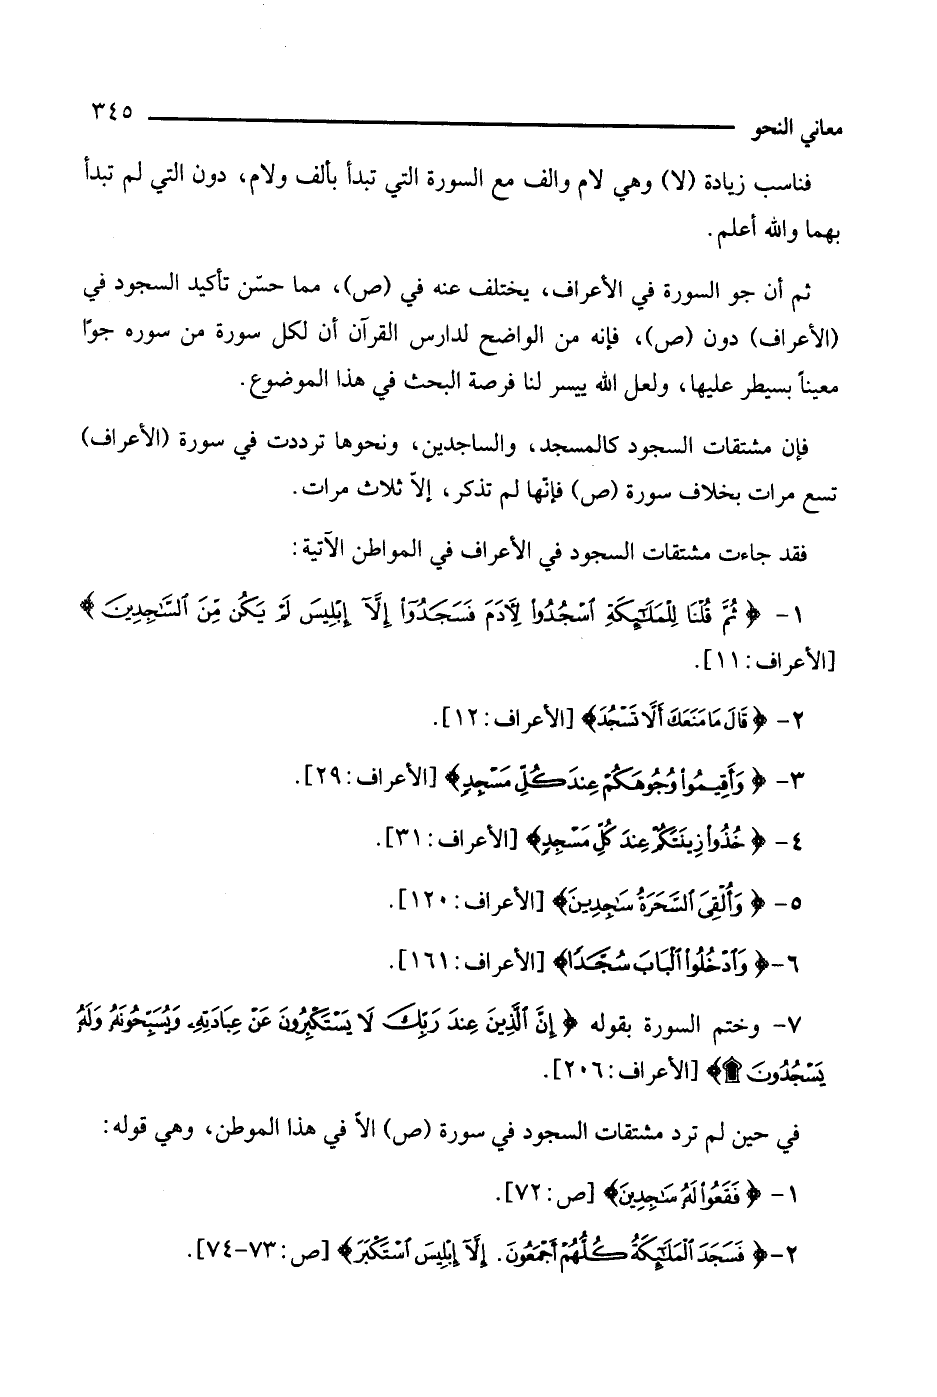 معاني النحو ٣٤٥
فناسب زيادة (لا) وهي لام والف مع السورة التي تبدأ بألف ولام، دون التي لم تبدأ
بهما والله أعلم.
ثم أن جو السورة في الأعراف، يختلف عنه في (ص)، مما حسّن تأكيد السجود في
(الأعراف) دون (ص)، فإنه من الواضح لدارس القرآن أن لكل سورة من سوره جوًا
معيناً بسيطر عليها، ولعل الله ييسر لنا فرصة البحث في هذا الموضوع.
فإن مشتقات السجود كالمسجد، والساجدين، ونحوها ترددت في سورة (الأعراف)
تسع مرات بخلاف سورة (ص) فإنّها لم تذكر، إلاّ ثلاث مرات.
فقد جاءت مشتقات السجود في الأعراف في المواطن الآتية:
١- ﴿ ثُمَّ قُلْنَا لِلْمَلَٰٓئِكَةِ ٱسْجُدُوا۟ لِـَٔادَمَ فَسَجَدُوٓا۟ إِلَّآ إِبْلِيسَ لَمْ يَكُن مِّنَ ٱلسَّٰجِدِينَ ﴾
[الأعراف: ١١].
٢- ﴿ قَالَ مَا مَنَعَكَ أَلَّا تَسْجُدَ﴾ [الأعراف: ١٢].
٣- ﴿ وَأَقِيمُوا۟ وُجُوهَكُمْ عِندَ كُلِّ مَسْجِدٍ﴾ [الأعراف: ٢٩].
٤- ﴿ خُذُوا۟ زِينَتَكُمْ عِندَ كُلِّ مَسْجِدٍ﴾ [الأعراف: ٣١].
٥- ﴿ وَأُلْقِىَ ٱلسَّحَرَةُ سَٰجِدِينَ﴾ [الأعراف: ١٢٠].
٦-﴿ وَٱدْخُلُوا۟ ٱلْبَابَ سُجَّدًا﴾ [الأعراف: ١٦١].
٧- وختم السورة بقوله ﴿ إِنَّ ٱلَّذِينَ عِندَ رَبِّكَ لَا يَسْتَكْبِرُونَ عَنْ عِبَادَتِهِۦ وَيُسَبِّحُونَهُۥ وَلَهُۥ
يَسْجُدُونَ ۩﴾ [الأعراف: ٢٠٦].
في حين لم ترد مشتقات السجود في سورة (ص) الاّ في هذا الموطن، وهي قوله:
١- ﴿ فَقَعُوا۟ لَهُۥ سَٰجِدِينَ﴾ [ص: ٧٢].
٢-﴿ فَسَجَدَ ٱلْمَلَٰٓئِكَةُ كُلُّهُمْ أَجْمَعُونَ. إِلَّآ إِبْلِيسَ ٱسْتَكْبَرَ﴾ [ص: ٧٣-٧٤].